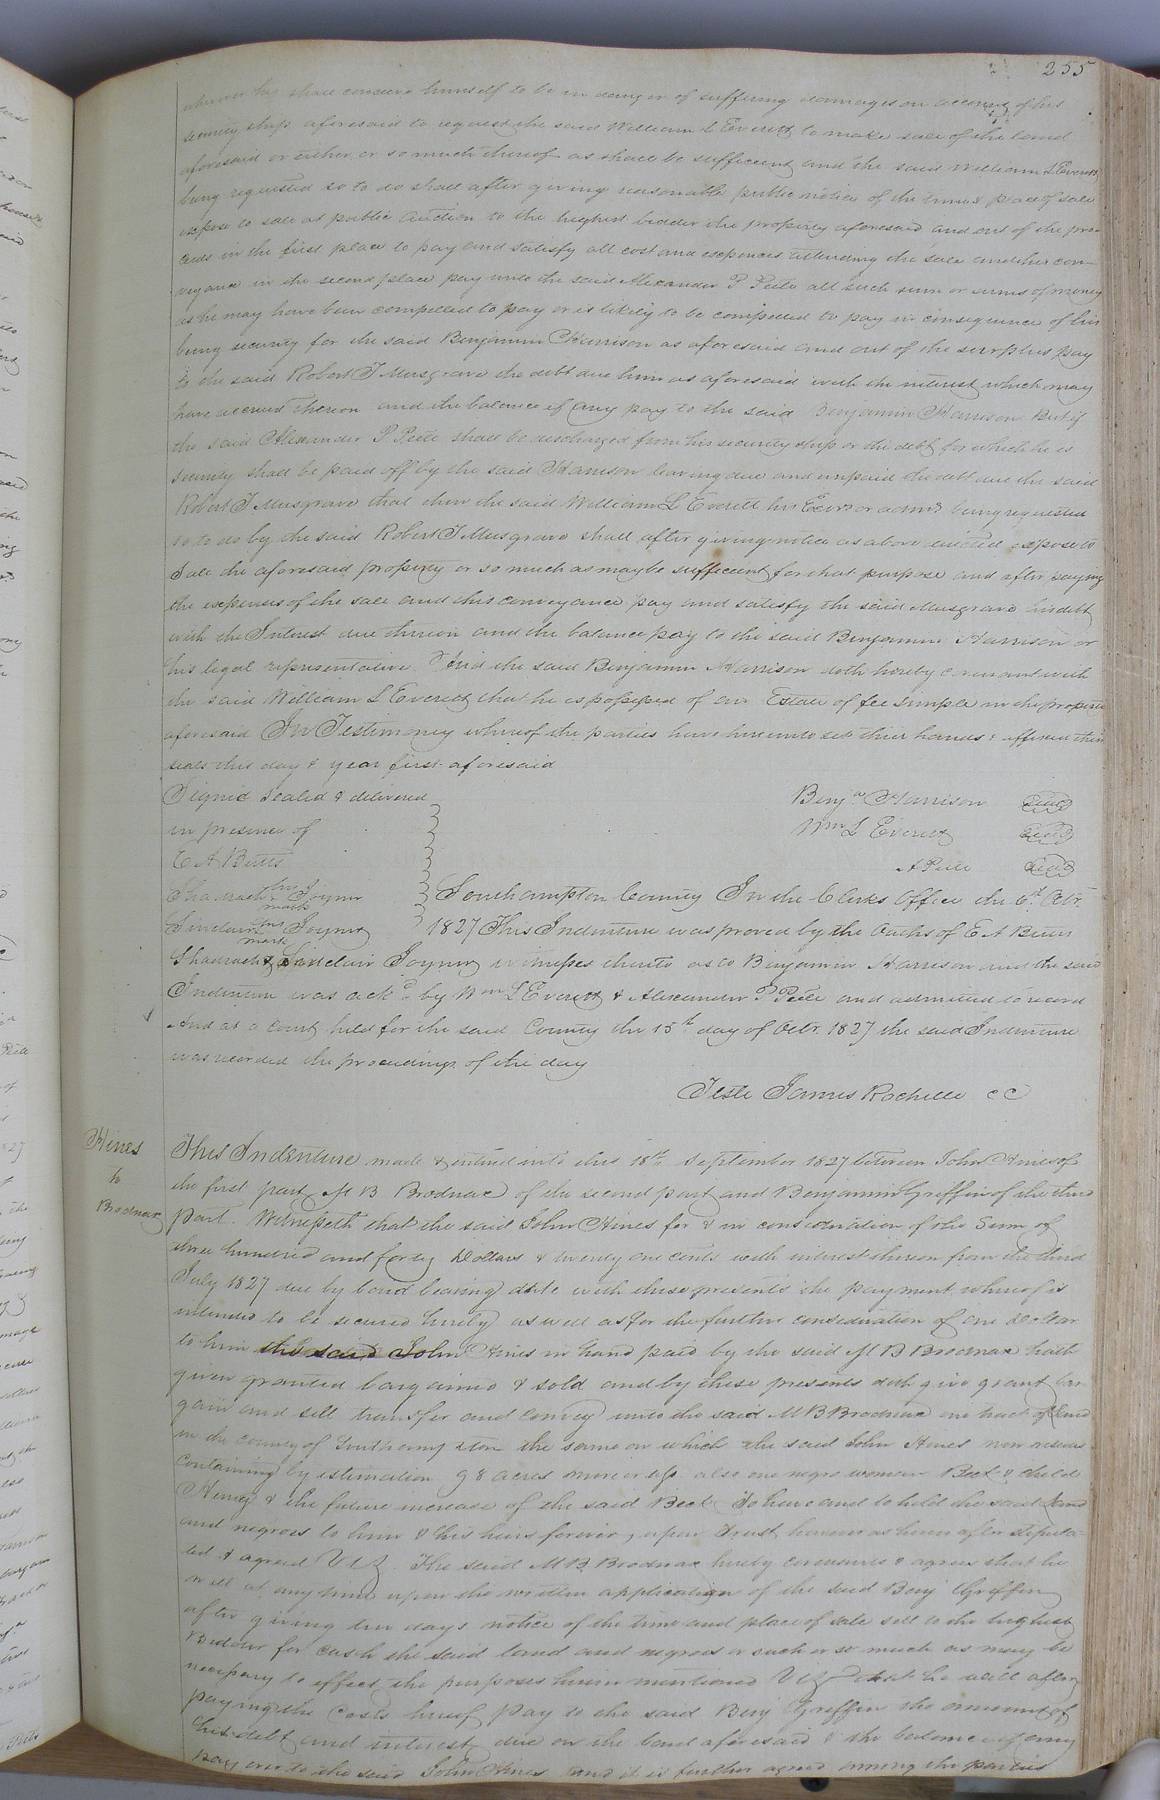 255
whenever he shall conceive himself to be in danger of suffering damages on account of his
security ship aforesaid to request the said William L Everett to make sale of the land
aforesaid or either or so much thereof as shall be sufficient and the said William L Everett
being requested so to do shall after giving reasonable public notice of the time & place of sale
expose to sale at public auction to the highest bidder the property aforesaid and out of the pro-
ceeds in the first place to pay and satisfy all cost and expences attending the sale and this con-
veyance in the second place pay unto the said Alexander P Peete all such sum or sums of money
as he may have been compelled to pay or is likely to be compelled to pay in consequence of his
being security for the said Benjamin Harrison as aforesaid and out of the surplus pay
to the said Robert T Musgrave the debt due him as aforesaid with the interest which may
have accrued thereon and the balance if any pay to the said Benjamin Harrison But if
the said Alexander P Peete shall be discharged from his security ship or the debt for which he is
security shall be paid off by the said Harrison leaving due and unpaid the debt due the said
Robert T Musgrave that then the said William L Everett his Exors or adms being requested
so to do by the said Robert T Musgrave shall after giving notice as above directed expose to
Sale the aforesaid property or so much as may be sufficient for that purpose and after paying
the expenses of the sale and this conveyance pay and satisfy the said Musgrave his debt
with the Interest due thereon and the balance pay to the said Benjamin Harrison or
his legal representative And the said Benjamin Harrison doth hereby covenant with
the said William L Everett that he is possessed of an Estate of fee simple in the property
aforesaid In Testimony whereof the parties have hereunto set their hands & affixed their
seals this day & year first aforesaid
Signed sealed & delivered
in presence of
E A Butts
Shadrach his mark Joyner
Sinclair his mark Joyner
Benjn Harrison Seal
Wm L Everett Seal
A Peete Seal
Southampton County In the Clerks Office the 6th Octr
1827 This Indenture was proved by the Oaths of E A Butts
Shadrach & Sinclair Joyner witnesses thereto as to Benjamin Harrison and the said
Indenture was ackd by Wm L Everett & Alexander P Peete and admitted to record
And at a Court held for the said County the 15th day of Octr 1827 the said Indenture
was recorded the proceedings of the day
Teste James Rochelle CC
Hines
to
Brodnax
This Indenture made & entered into this 18th September 1827 between John Hines of
the first part M B Brodnax of the second part and Benjamin Griffin of the third
part. Witnesseth that the said John Hines for & in consideration of the Sum of
three hundred and forty Dollars & twenty one cents with interest thereon from the third
July 1827 due by bond bearing date with these presents the payment whereof is
intended to be secured hereby as well as for the further consideration of one Dollar
to him the said John Hines in hand paid by the said M B Brodnax hath
given granted bargained & sold and by these presents doth give grant bar-
gain and sell transfer and convey unto the said M B Brodnax one tract of land
in the county of Southampton the same on which the said John Hines now resides
containing by estimation 98 acres more or less also one negro woman Beck & child
& the future increase of the said Beck To have and to hold the said land
and negroes to him & his heirs forever, upon trust however as herein after stipula-
ted & agreed Viz. The said M B Brodnax hereby covenants & agrees that he
will at any time upon the written application of the said Benj Griffin
after giving ten days notice of the time and place of sale sell to the highest
Bidder for cash the said land and negroes or such or so much as may be
necessary to effect the purposes herein mentioned Viz that he will after
paying the costs hereof pay to the said Benj Griffin the amount of
his debt and interest due on the bond aforesaid & the balance if any
pay over to the said John Hines and it is further agreed among the parties